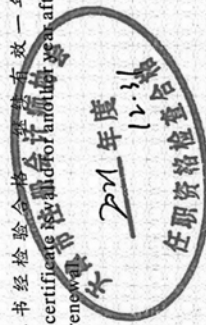 书经检验合格，继续有效一年
certificate is valid for another year after
renewal
天津市注册会计师协会
2021年度
12.31
任职资格检查合格